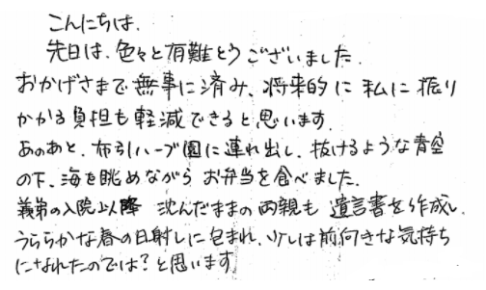 こんにちは.
先日は、色々と有難とうございました.
おかげさまで無事に済み、将来的に私に振り
かかる負担も軽減できると思います.
あのあと、布引ハーブ園に連れ出し、抜けるような青空
の下、海を眺めながらお弁当を食べました.
義弟の入院以降 沈んだままの両親も 遺言書を作成し、
うららかな春の日射しに包まれ、少しは前向きな気持ち
になれたのでは？と思います